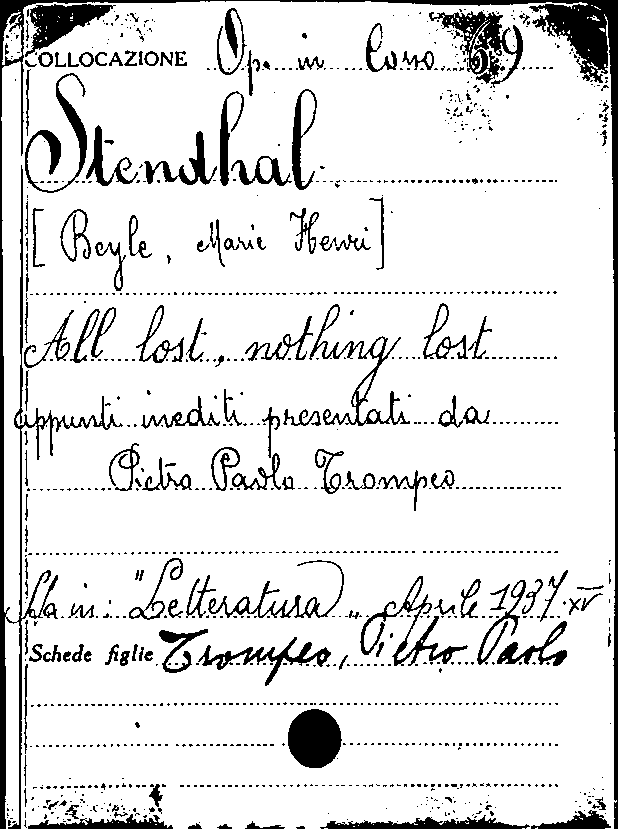 COLLOCAZIONE Op. in Corso 69
Stendhal.
[Beyle, Marie Henri]
All lost, nothing lost
appunti inediti presentati da
Pietro Paolo Trompeo
Sta in: "Letteratura„ Aprile 1937.XV
Schede figlie Trompeo, Pietro Paolo